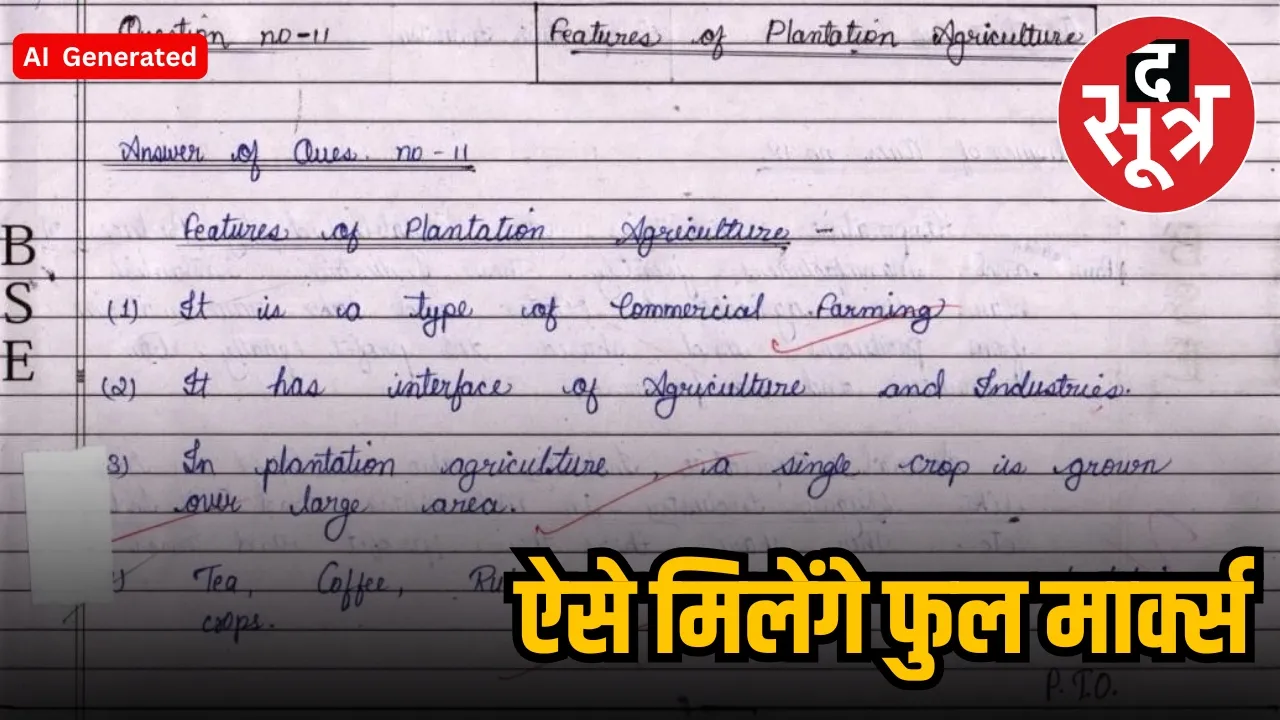 AI Generated
Question no-11
Features of Plantation Agriculture
द सूत्र
Answer of Ques. no-11
Features of Plantation Agriculture –
B
S
E
(1) It is a type of Commercial farming
(2) It has interface of Agriculture and Industries.
3) In plantation agriculture, a single crop is grown
over large area.
Tea, Coffee,
crops.
ऐसे मिलेंगे फुल मार्क्स
P.T.O.